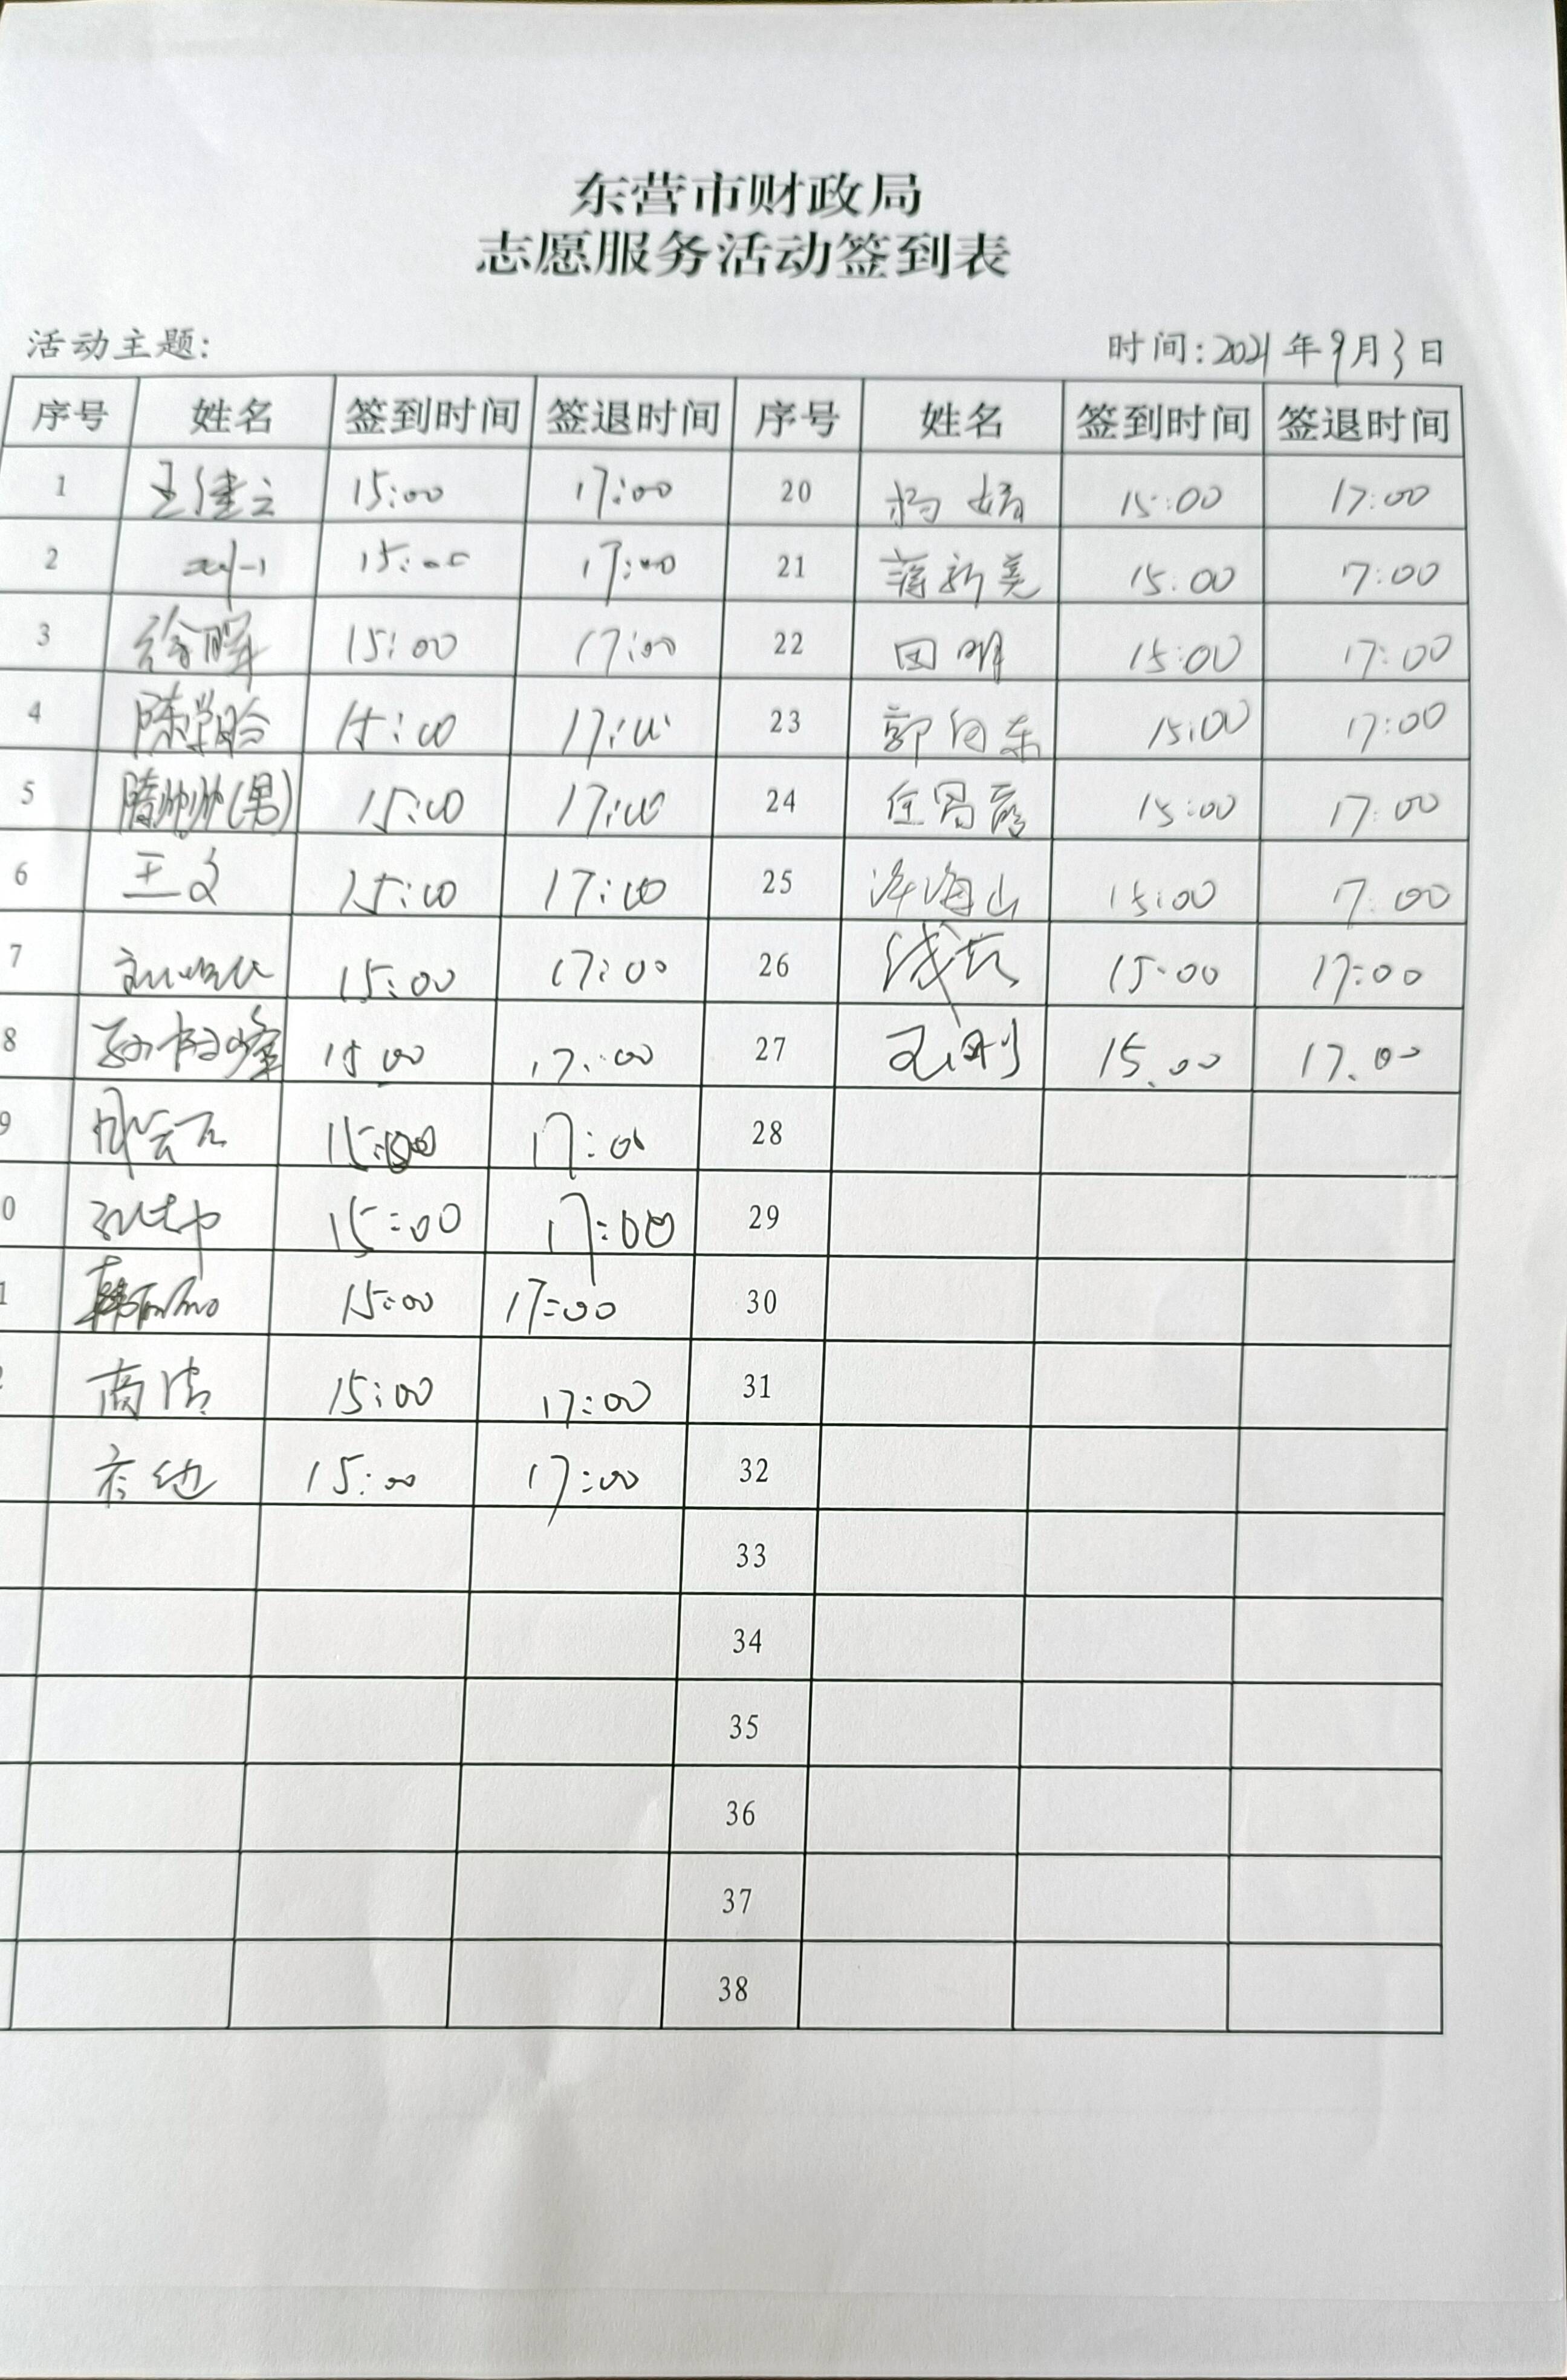 东营市财政局
志愿服务活动签到表
活动主题: 时间:2021年9月3日
序号 姓名 签到时间 签退时间 序号 姓名 签到时间 签退时间
1 王建立 15:00 17:00 20 杨娟 15:00 17:00
2 15:00 17:00 21 蒋新美 15:00 7:00
3 徐晖 15:00 17:00 22 田明 15:00 17:00
4 陈学晗 15:00 17:00 23 郭向东 15:00 17:00
5 隋帅帅(男) 15:00 17:00 24 15:00 17:00
6 王文 15:00 17:00 25 许海山 15:00 17:00
7 15:00 17:00 26 15:00 17:00
8 15:00 17:00 27 15.00 17.00
9 15:00 17:00 28
0 15:00 17:00 29
1 15:00 17:00 30
商洁 15:00 17:00 31
15:00 17:00 32
33
34
35
36
37
38